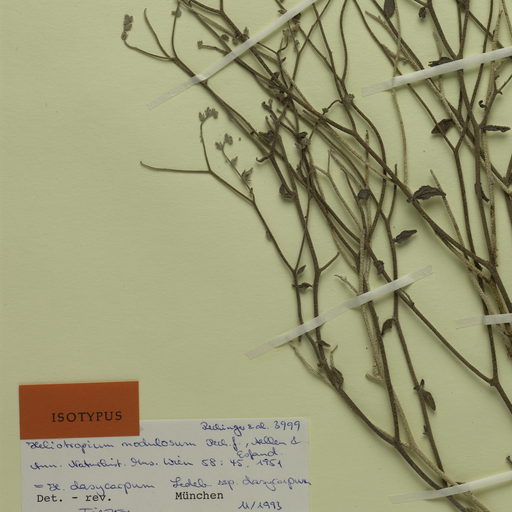 ISOTYPUS
Rechinger & al. 3999
Heliotropium nodulosum Rech. f., Aellen &
Esfand.
Ann. Naturhist. Mus. Wien 58: 45, 1951
= H. dasycarpum Ledeb. ssp. dasycarpum
Det. - rev. München
11/1993